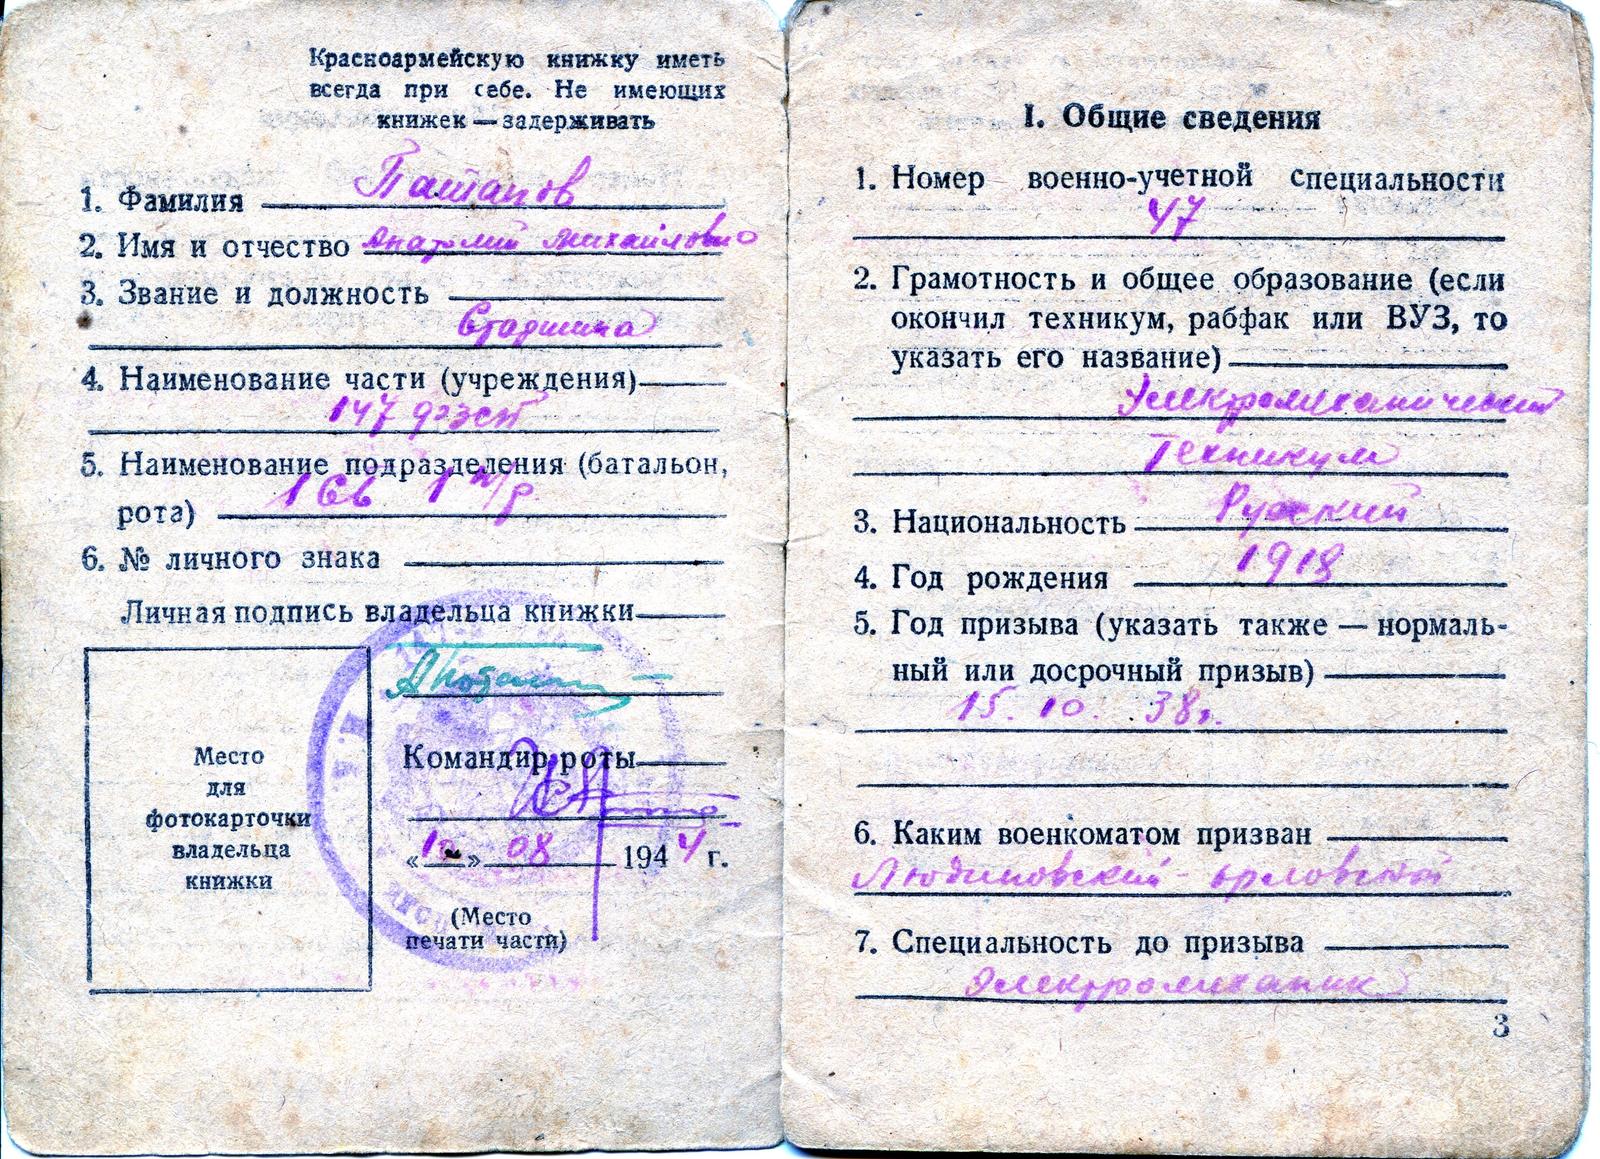 Красноармейскую книжку иметь
всегда при себе. Не имеющих
книжек — задерживать
1. Фамилия Патапов
2. Имя и отчество Анатолий Михайлович
3. Звание и должность
Старшина
4. Наименование части (учреждения)
147
5. Наименование подразделения (батальон,
рота)
6. № личного знака
Личная подпись владельца книжки
Место
для
фотокарточки
владельца
книжки
Командир роты
« » 08 1944 г.
(Место
печати части)
I. Общие сведения
1. Номер военно-учетной специальности
47
2. Грамотность и общее образование (если
окончил техникум, рабфак или ВУЗ, то
указать его название)
Электромеханический
Техникум
3. Национальность Русский
4. Год рождения 1918
5. Год призыва (указать также — нормаль-
ный или досрочный призыв)
15. 10. 38г.
6. Каким военкоматом призван
Людиновский - орловский
7. Специальность до призыва
Электромеханик
3